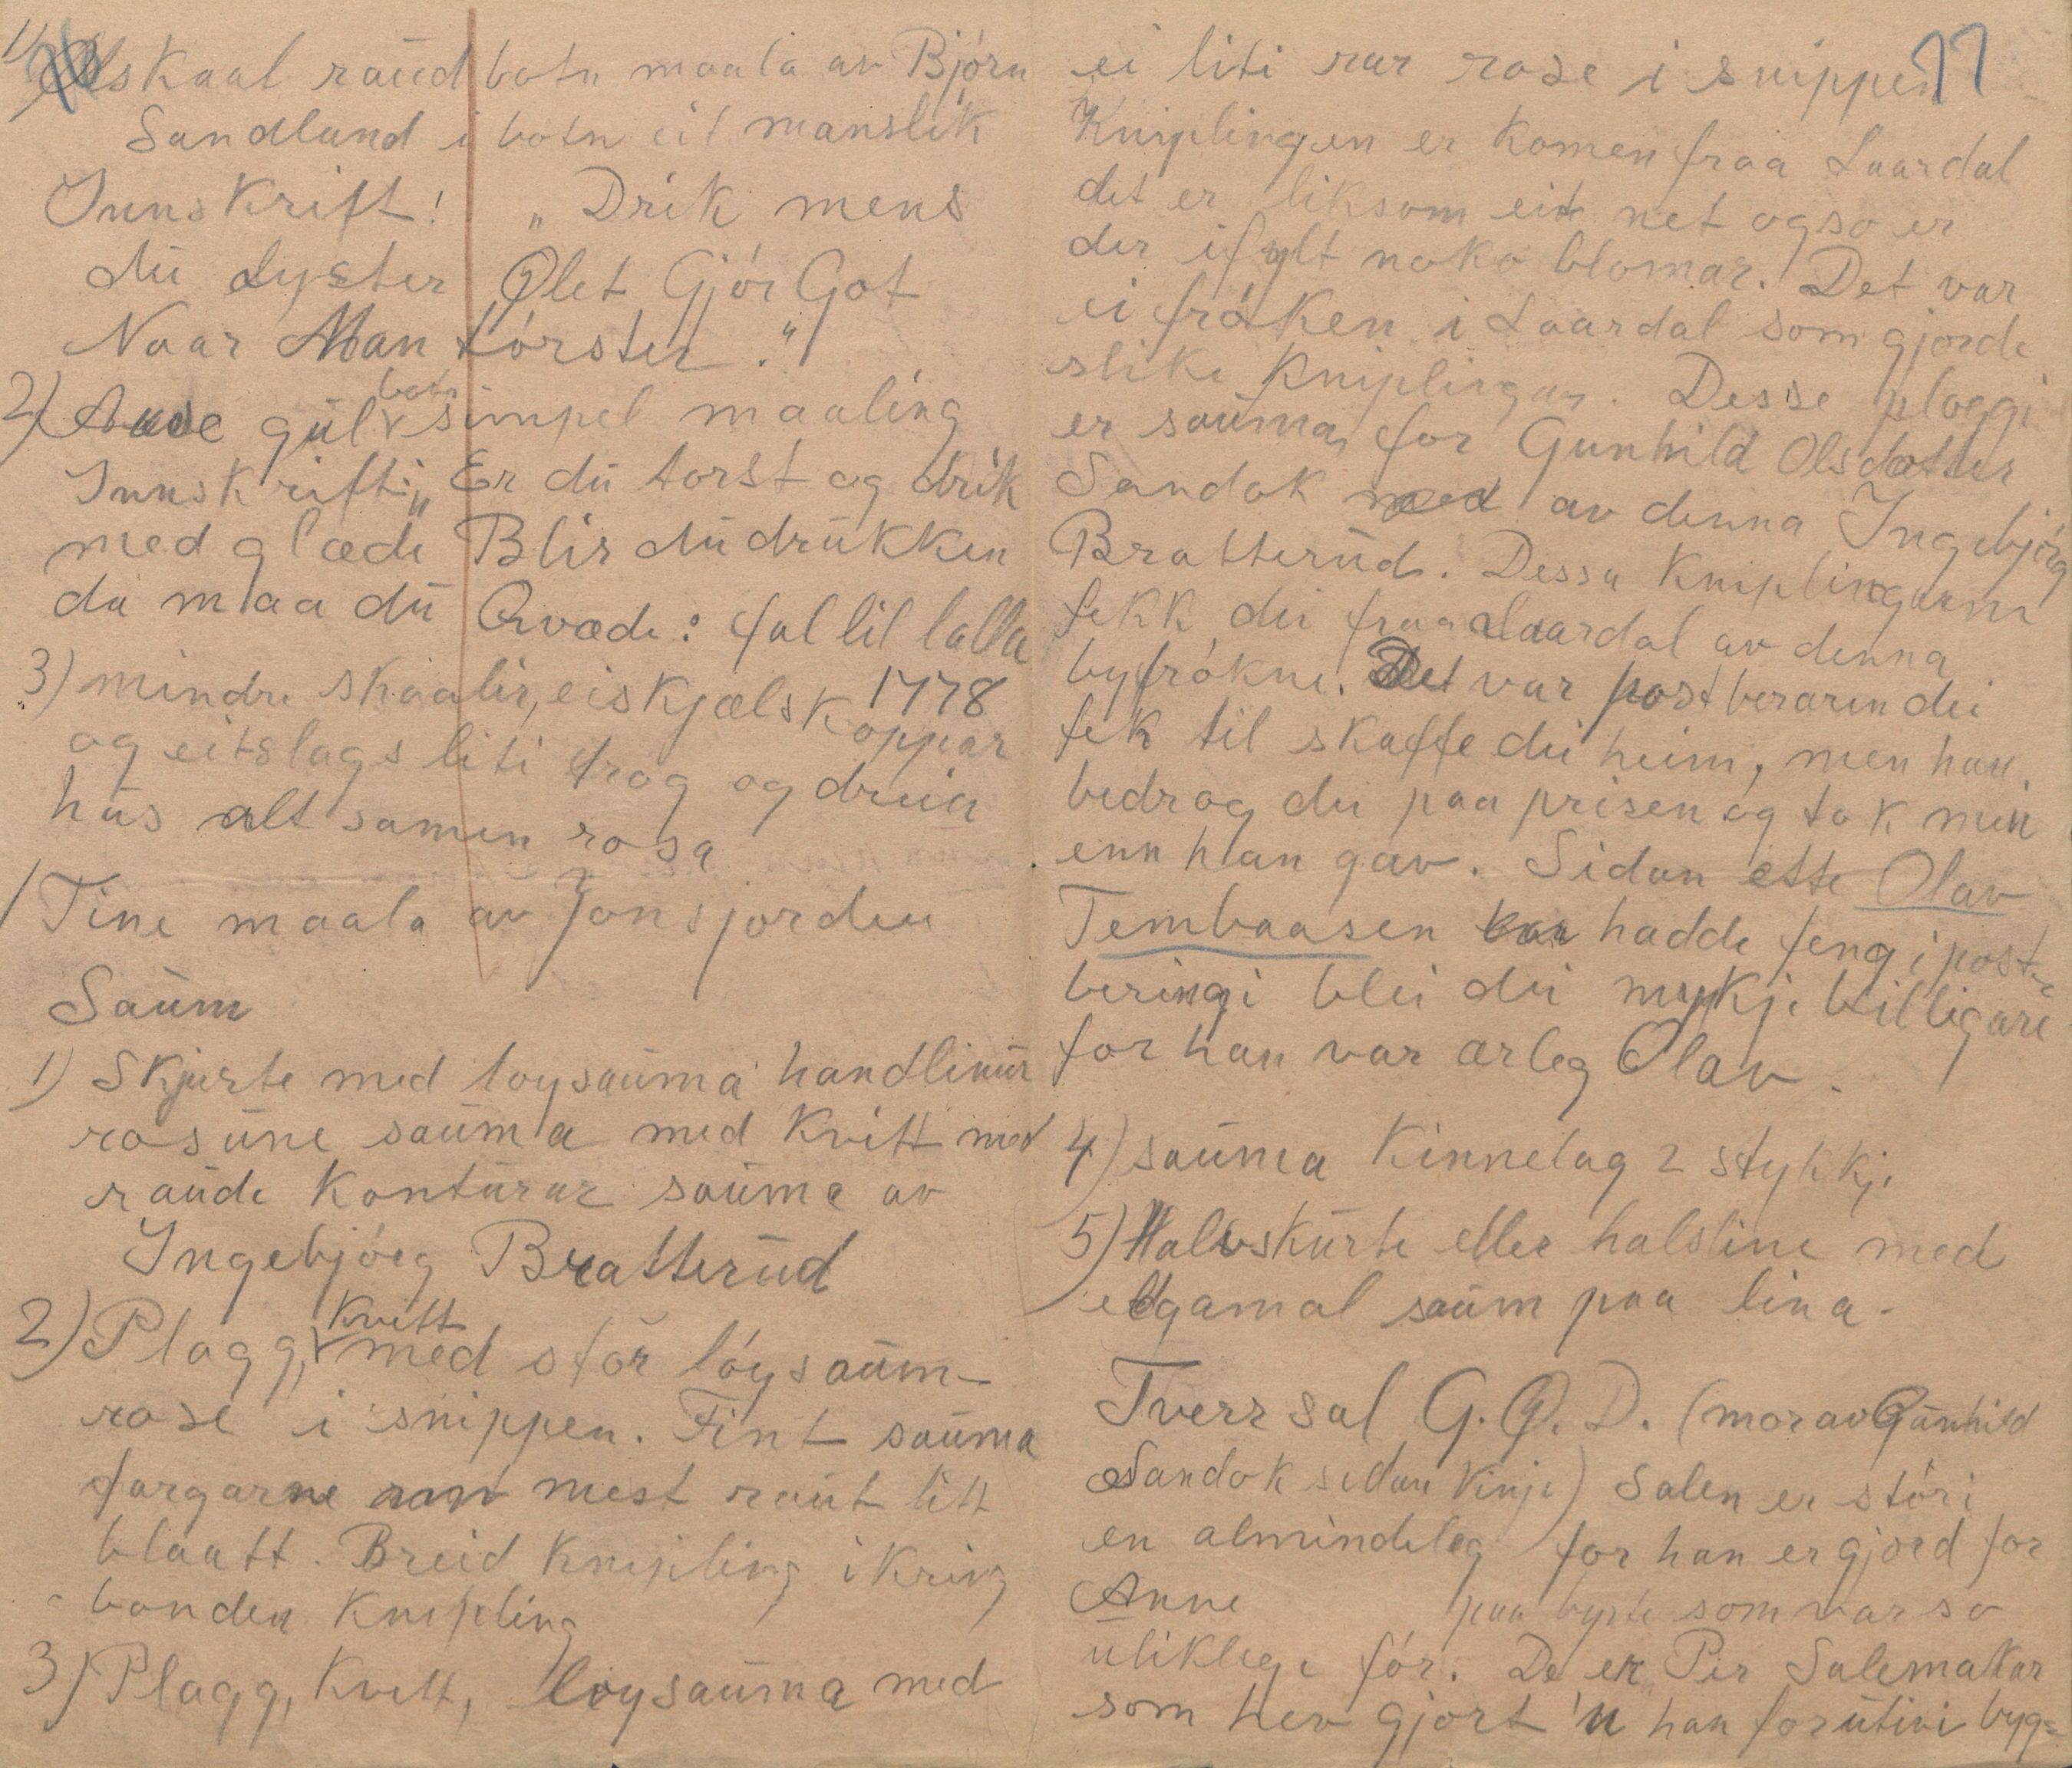 1) Ølskaal raud botn maala av Bjørn
Sandland i botn eit manslik
Innskrift! "Drik mens
du Lyster Ølet Gjør Got
Naar Man tørster."
2) gul botn simpel maaling
Innskrift: "Er du torst og drik
med glæde Blir du drukken
da maa du Qvæde: fal lil lalla
3) mindre skaalir, ei skjælskoppar 1778
og eitslags liti trog og
hus alt samen rosa
Tine maala av Jonsjorden
Saum
1) Skjurte med loysauma handlinur
rosune sauma med kvitt med
raude konturar sauma av
Ingebjørg Bratterud
2) Plagg, kvitt med stor løysaum-
rose i snippen. Fint sauma
fargarne mest raut litt
blaatt. Breid knipling ikring
bonden knipling
3) Plagg, kvitt, loysauma med
77
ei liti rar rose i snippen
Kniplingen er komen fraa Laardal
det er liksom eit net ogso er
der ifylt noko blomar. Det var
ei frøken i Laardal som gjorde
slike kniplingar. Desse ploggi
er sauma for Gunhild Olsdotter
Sandok av denna Ingebjørg
Bratterud. Dessa kniplingarne
fekk dei fraa Laardal av denna
byfrøkne. Det var postberaren dei
fek til skaffe dei heim, men han
bedrog dei paa prisen og tok min
enn han gav. Sidan ette Olav
Tembaasen hadde feng i post-
beringi blei dei mykje billigare
for han var ærleg Olav.
4) sauma Kinnelag 2 stykkje
5) Halvskurte eller halsline med
eldgamal saum paa lina.
Tverrsal G. O. D. (mor av Gunhild
Sandok sidan Kinje) Salen er støri
en almindeleg for han er gjord for
Anne paa som var so
uliklege før. De er Per Salemakar
som hev gjort 'n han forutivi byg=